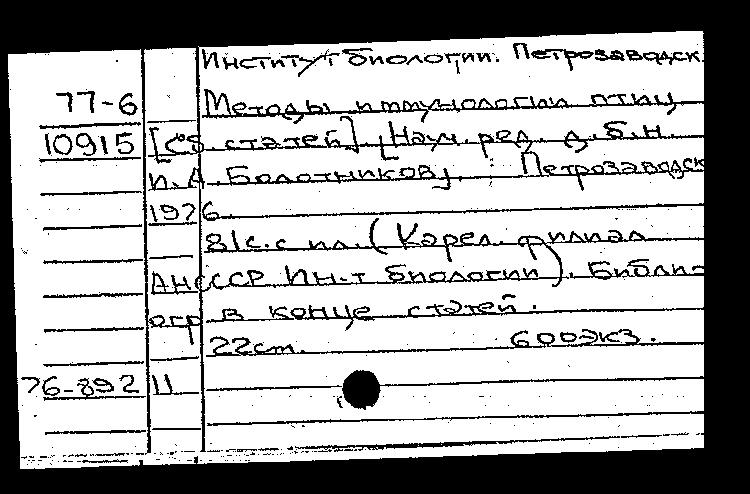 Институт биологии. Петрозаводск.
77-6 Методы иммунологии птиц
10915 [Сб. статей]. [Науч. ред. д.б.н.
И.А. Болотников]. Петрозаводск
1976.
81с. с ил. (Карел. филиал
АН СССР Ин-т биологии). Библи-
огр в конце статей.
22см. 600экз.
76-892 11